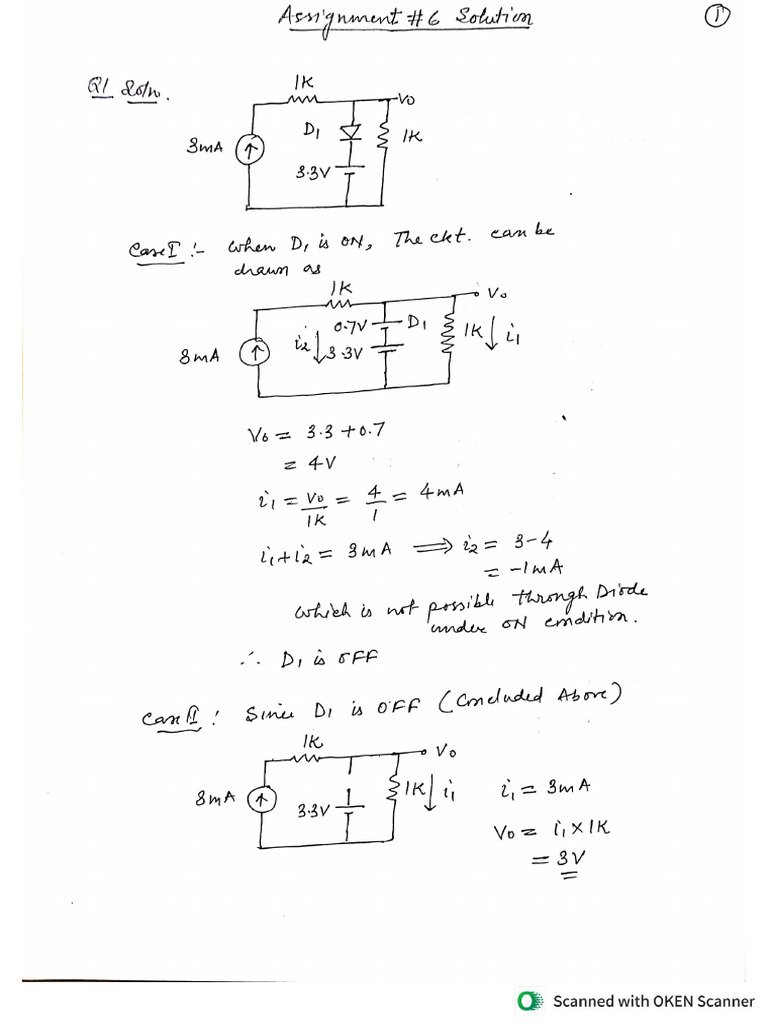 Assignment #6 Solution
1
Q1 Soln.
1K
Vo
D1
1K
3mA
3.3V
Case I :- When D1 is ON, The ckt. can be
drawn as
1K
Vo
0.7V
D1
1K
i1
i2
3.3V
3mA
Vo = 3.3 + 0.7
= 4V
i1 = Vo/1K = 4/1 = 4mA
i1+i2 = 3mA ⟹ i2 = 3-4
= -1mA
Which is not possible through Diode
under ON condition.
∴ D1 is OFF
Case II : Since D1 is OFF (Concluded Above)
1K
Vo
3mA
3.3V
1K
i1
i1 = 3mA
Vo = i1 × 1K
= 3V
Scanned with OKEN Scanner